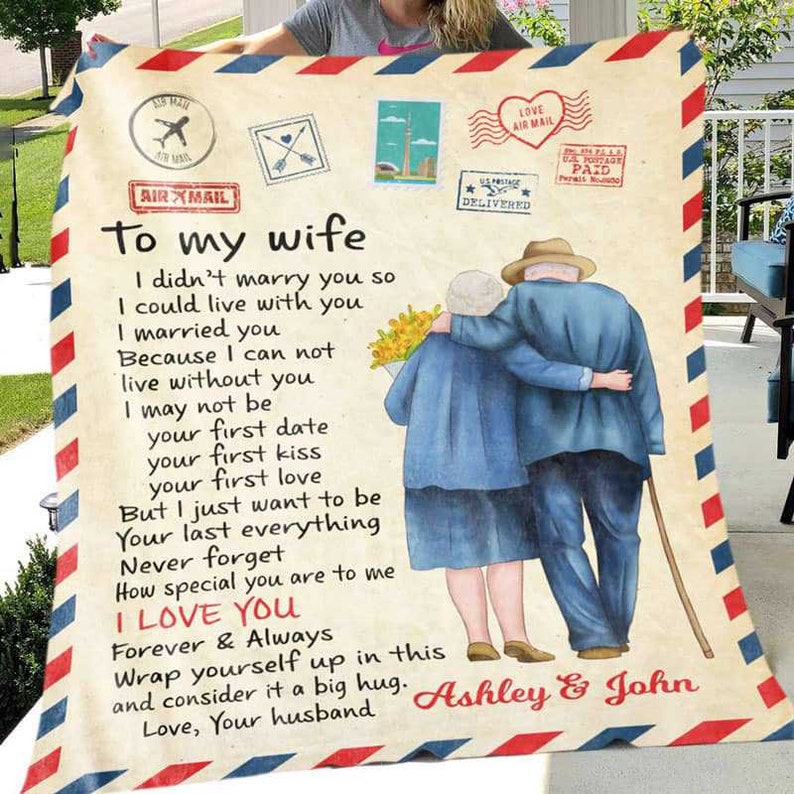 AIR MAIL
AIR MAIL
AIR MAIL
LOVE
AIR MAIL
U.S. POSTAGE
PAID
U.S. POSTAGE
DELIVERED
To my wife
I didn't marry you so
I could live with you
I married you
Because I can not
live without you
I may not be
your first date
your first kiss
your first love
But I just want to be
Your last everything
Never forget
How special you are to me
I LOVE YOU
Forever & Always
Wrap yourself up in this
and consider it a big hug.
Love, Your husband
Ashley & John